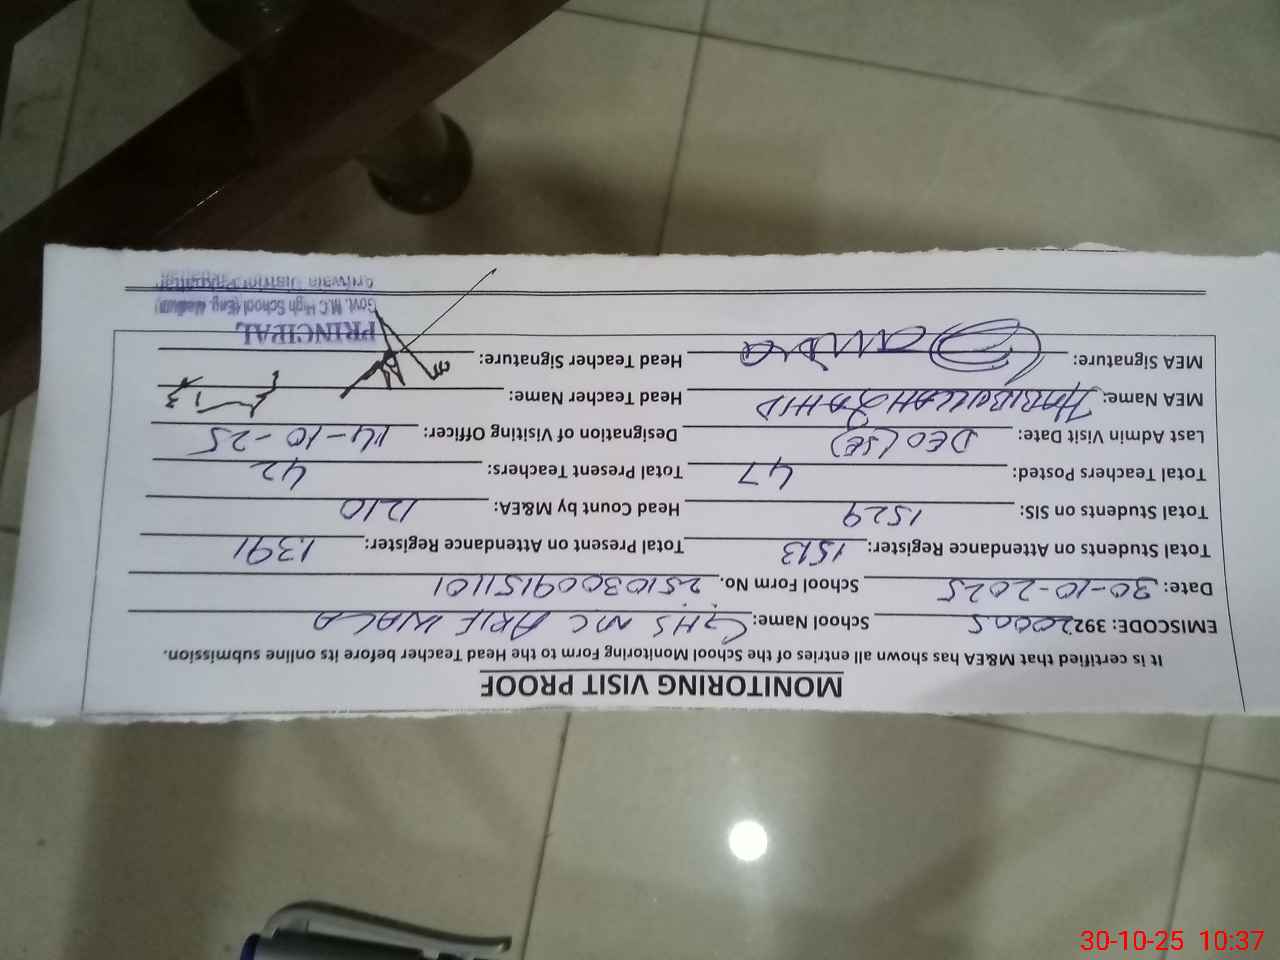 MONITORING VISIT PROOF
It is certified that M&EA has shown all entries of the School Monitoring Form to the Head Teacher before its online submission.
EMISCODE: 39220005 School Name: GHS MC ARIF WALA
Date: 30-10-2025 School Form No. 25103009151101
Total Students on Attendance Register: 1513 Total Present on Attendance Register: 1391
Total Students on SIS: 1529 Head Count by M&EA: 1210
Total Teachers Posted: 47 Total Present Teachers: 42
Last Admin Visit Date: DEO (SE) Designation of Visiting Officer: 14-10-25
MEA Name: HABIBULLAH ZAHID Head Teacher Name:
MEA Signature: Head Teacher Signature:
PRINCIPAL
Govt. M.C High School (Eng. Medium)
Arifwala District Pakpattan
30-10-25 10:37